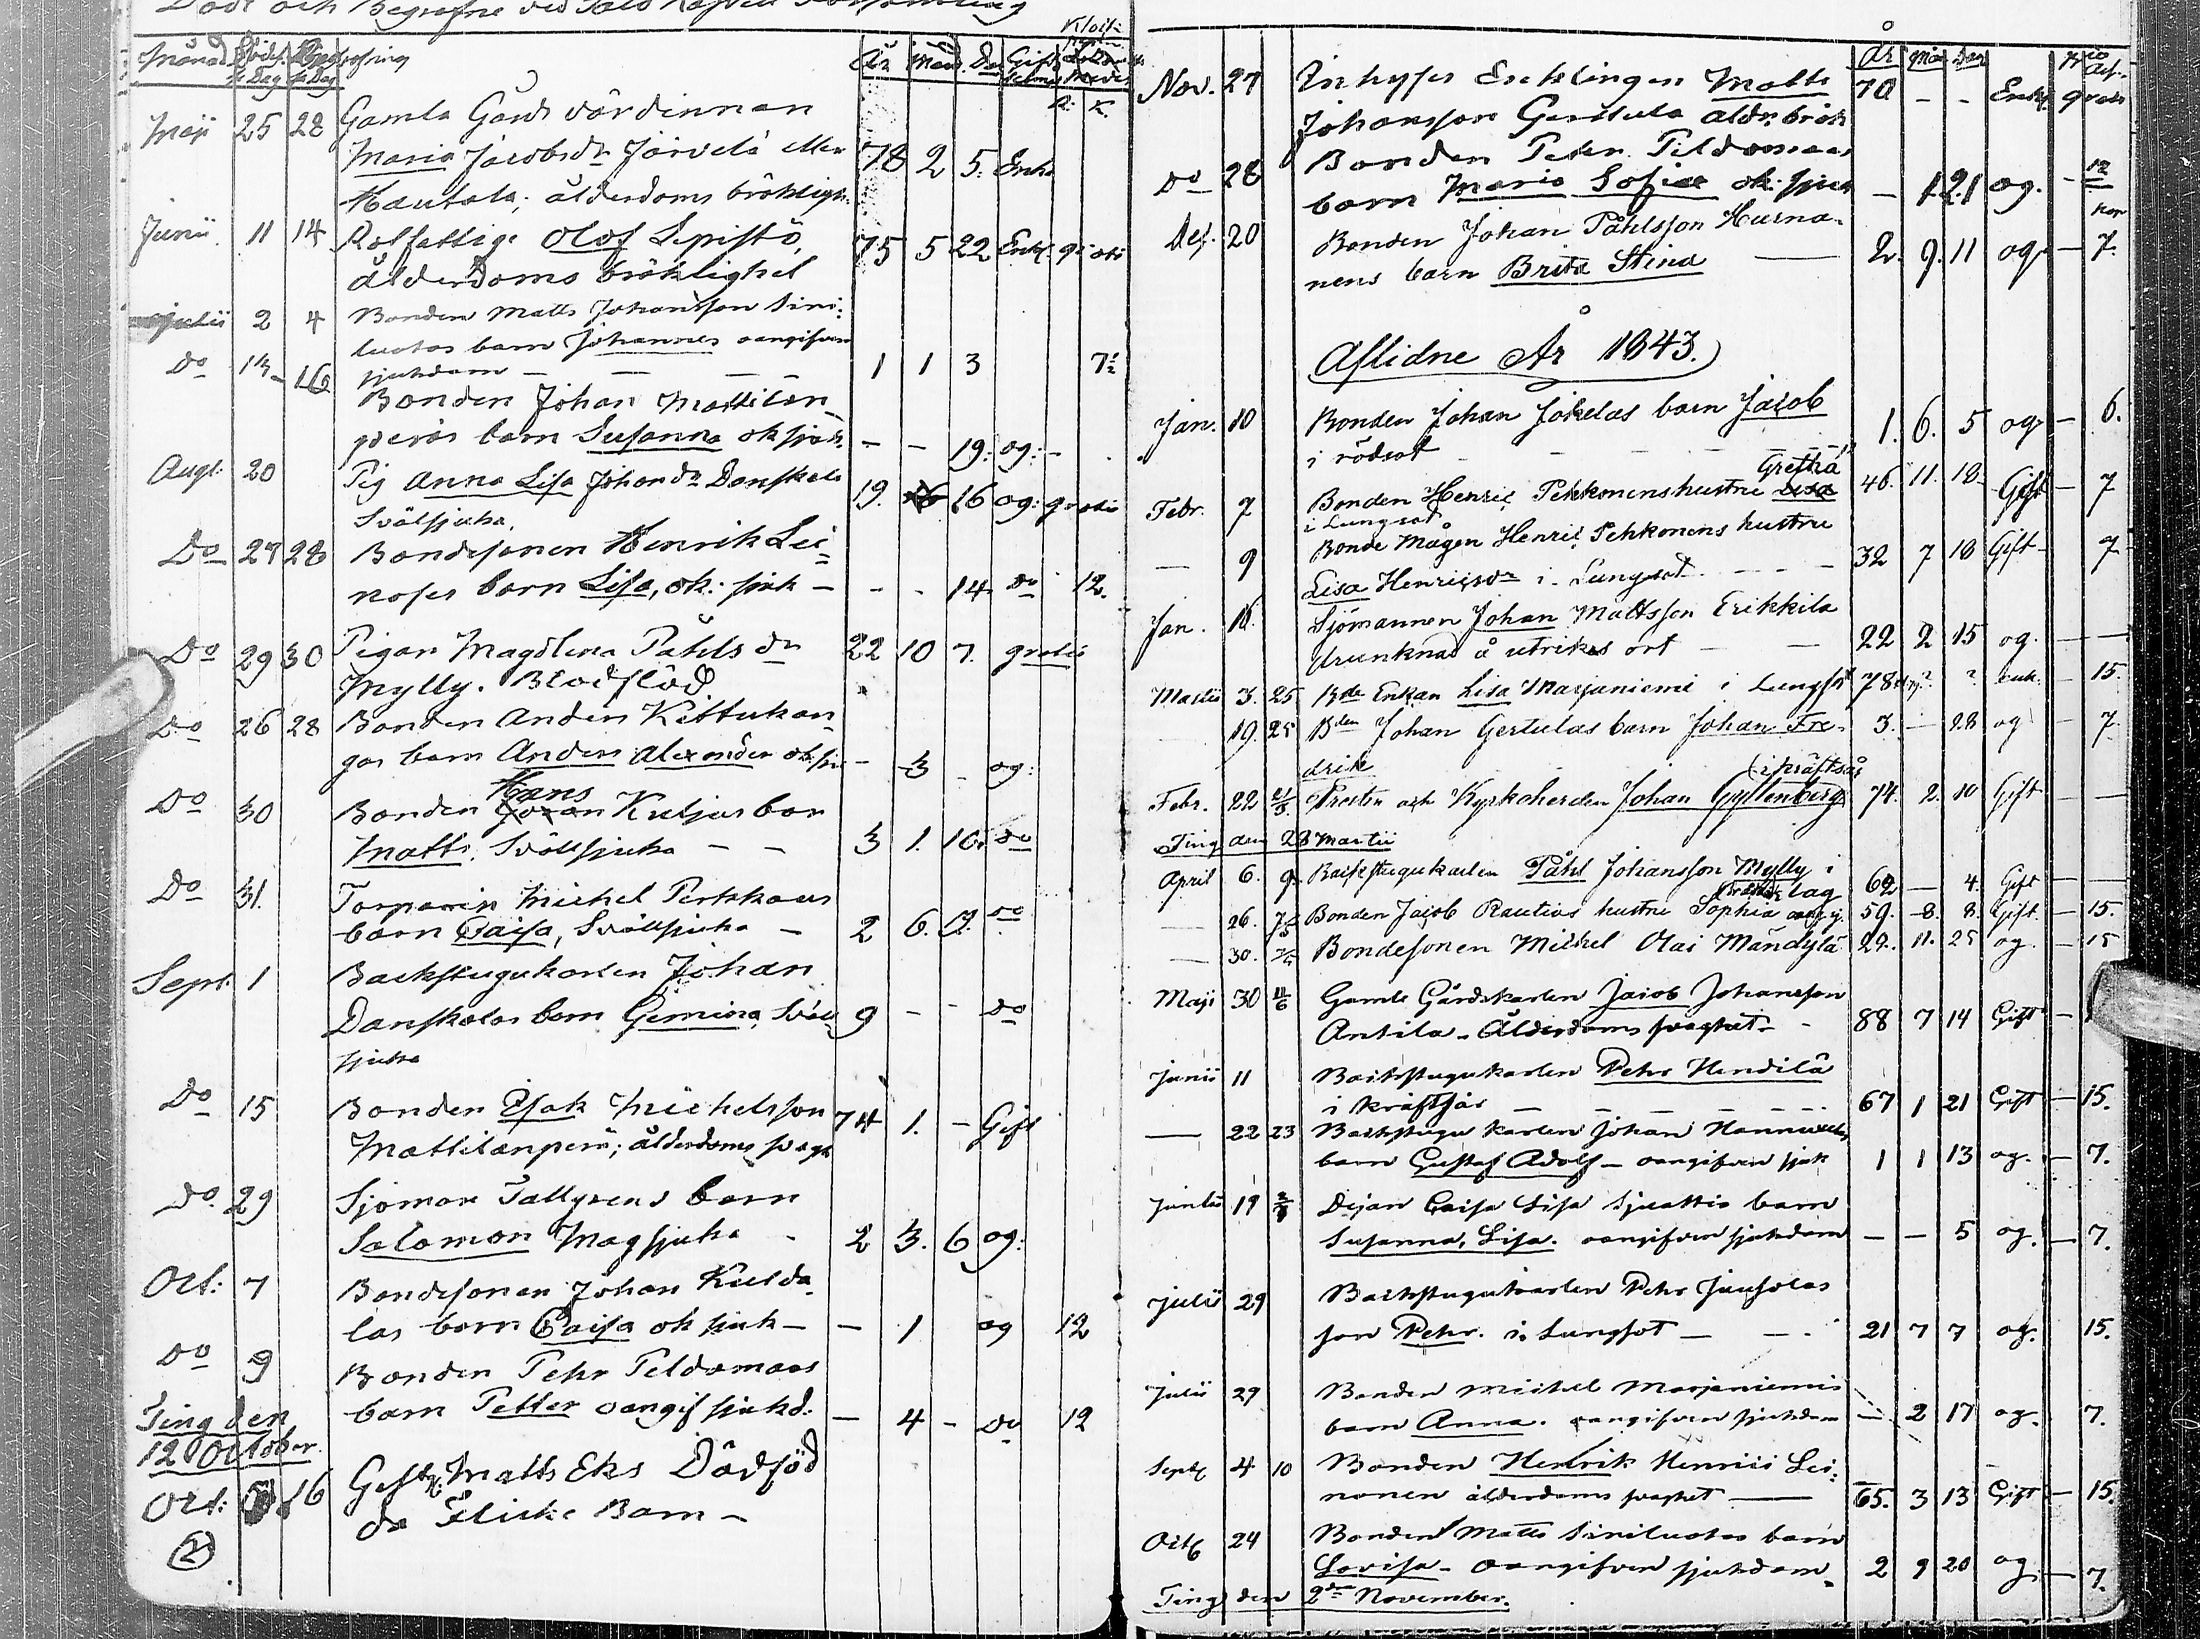 Död och Begrafne vid
Månad Döds Dag Begrafning Dag År Mån. Dag Gift
Maji 25 28 Gamla Gårdvärdinnan
Maria Jacobsdr Järvelä eller
Kautala, ålderdoms bräklighet 78 2 5. Enka
Junii 11 14 Rotfattige Olof Sepistö, 75 5 22 Enkl. gratis
Ålderdoms bräklighet
Julii 2 4 Bonden Matts Johansson Sini-
luotos barn Johannes oangifven
sjukdom — — — 1 1 3 7½
Do 14 16 Bonden Johan Mattilan-
peräs barn Susanna ok sjuk. — — 19. og: —
Augt. 20 Pig Anna Lisa Johansdr Danskala 19. 16 og: gratis
Svålsjuka.
Do 27 28 Bondesonen Henrik Lei-
noses barn Lisa, ok: sjuk — - - 14 do 12.
Do 29 30 Pigan Magdlena Påhlsdr 22 10 7. gratis
Mylly. Blodflöd.
Do 26 28 Bonden Anders Kittukan-
gas barn Anders Alexander ok sju — 3 - og:
Hans
Do 30 Bonden Johan Kuljus barn
Matts. Svållsjuka — — 3 1. 16. do
Do 31. Torparen Michel Perkkaus
barn Caisa, Svållsjuka — 2 6. 7. do
Sept. 1 Backstugukarlen Johan
Danskalas barn Gemina, Svål- 9 - - do
sjuka
Do 15 Bonden Isak Michelsson 74 1. - Gift
Mattilanperä; ålderdoms svagh
Do 29 Sjöman Tallgrens barn
Salomon Magsjuka - 2 3. 6 og:
Oct: 7 Bondesonen Johan Kuida-
las barn Caisa ok sjuk — — 1 og 12
Do 9 Bonden Pehr Peldomaas
barn Petter oangif sjukd. — 4 - do 12
Ting den
12 October.
Oct: 16 Gestg. Matts Eks Dödföd
da Flicke Barn —
2
År Mån Dag
Nov. 27 Inhyses Enklingen Matts 70 - - Enkl. gratis
Johansson Gertula ålder bräk
Do 28 Bonden Pehr Peldomaas
barn Maria Sofia ok: sjuk — 1 21 og. — 12
Dec. 20 Bonden Johan Påhlsson Hurna-
nens barn Brita Stina — 2. 9. 11 og — 7.
Aflidne År 1843.
Jan. 10 Bonden Johan Jokelas barn Jacob 1. 6. 5 og — 6.
i rödsot
Gretha
Febr. 7 Bonden Henric Pehkonens hustru Lisa 46. 11. 18. Gift — 7
i Lungsot
— 9 Bonde Mågen Henric Pehkonens hustru
Lisa Henricsdr i Lungsot - - - 32 7 18 Gift — 7
Jan. 18. Sjömannen Johan Mattsson Erikkila
drunknad å utrikes ort — — 22 2 15 og. — —
Martii 3. 25 Bde Enkan Lisa Marjaniemi i Lungsot 78 ? enk. — 15.
19. 25 Bden Johan Gertulas barn Johan Fre- 3. — 28 og — 7
drik
i kräftsår
Febr. 22 21/3. Prosten och Kyrkoherden Johan Gyllenberg 74. 2. 10 Gift — —
Ting den 28 Martii
April 6. 9. Backstugukarlen Påhl Johansson Mylly i 62 — 4. Gift —
lag
— 26. 7/5 Bonden Jacob Rautios hustru Sophia 59. 8. 8. Gift — 15.
— 30. 7/5 Bondesonen Michel Olai Mändylä 22. 11. 25 og. — 15
Maji 30 11/6 Gamle Gårdskarlen Jacob Johansson
Antila - Ålderdoms svaghet - 88 7 14 Gift —
Junii 11 Backstugukarlen Pehr Hendilä
i kräftsår — — — — 67 1 21 Gift — 15.
— 22 23 Backstugu karlen Johan Hannuxelas
barn Gustaf Adolf — oangifven sjuk 1 1 13 og. — 7.
Junii 19 Dejan Caisa Lisa Sjuattis barn
Susanna, Lisa. oangifven sjukdom — — 5 og. — 7.
Julii 29 Backstugukarlen Pehr Junsolas
son Pehr. i Lungsot — — - 21 7 7 og. 15.
Julii 29 Bonden Michel Marjaniemis
barn Anna. oangifven sjukdom — 2 17 og. 7.
Sept. 4 10 Bonden Henrik Henrici Lei-
nonen ålderdoms svaghet — 65. 3 13 Gift — 15.
Octb 24 Bonden Matts Siniluotos barn
Lovisa - oangifven sjukdom. 2 9 20 og — 7.
Ting den 2dra November.